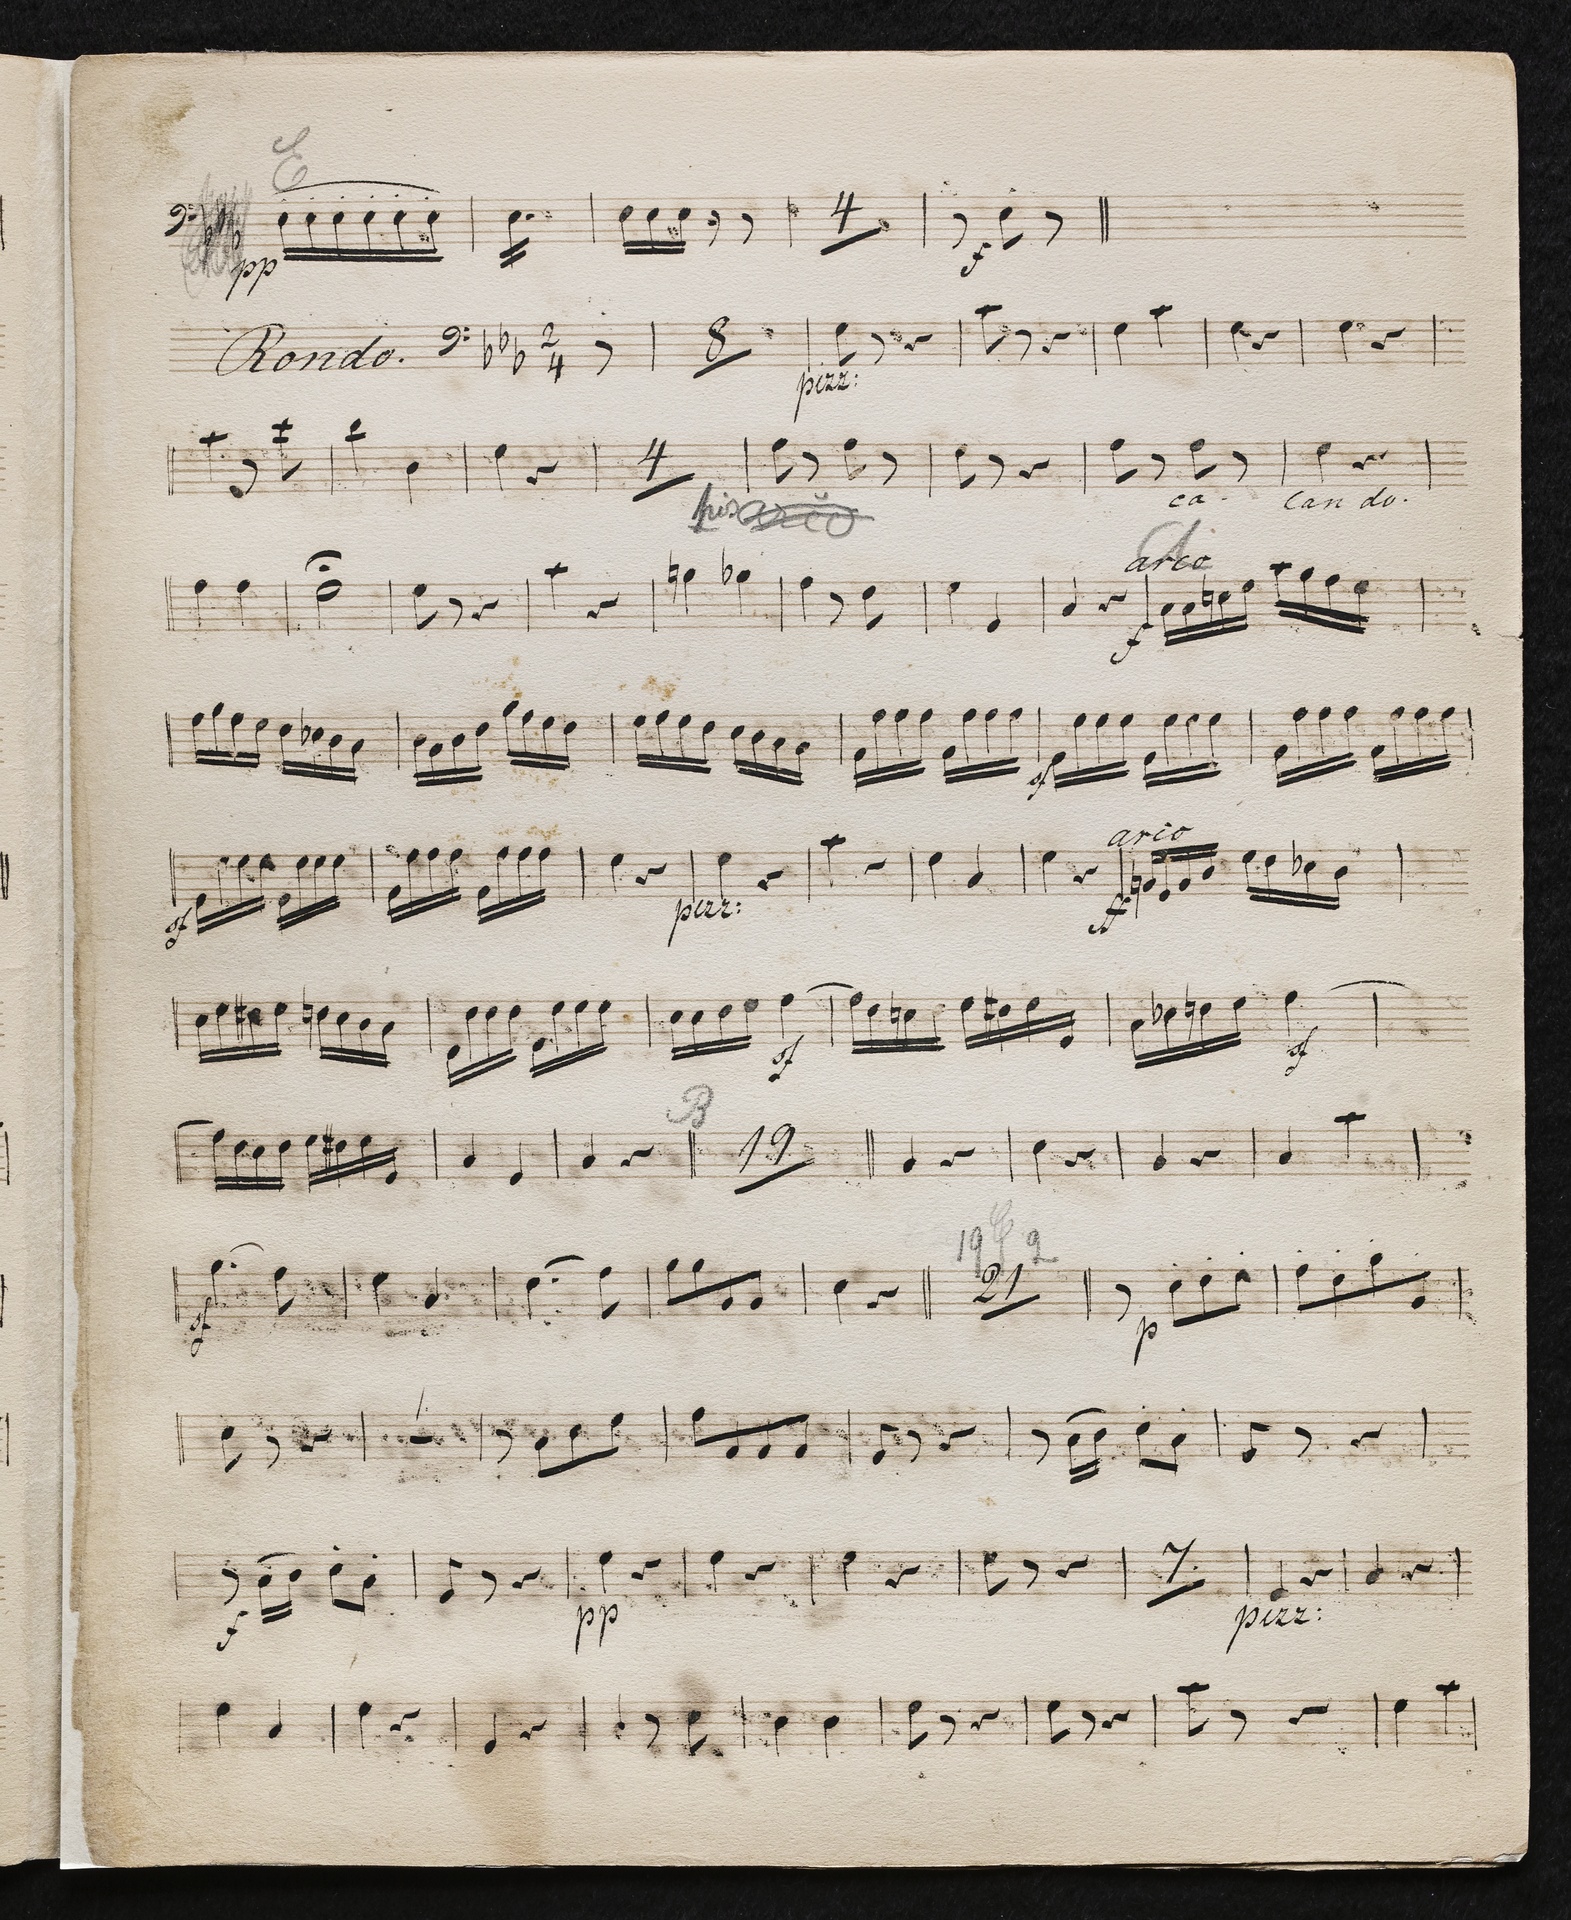 E
pp 4 f
Rondo. 2 4 8 pizz:
4 ca - can do.
pis arco
arco A
f
sf
arco
sf pizz: ff
sf sf
B
19
19 2
sf 21 p
f pp 7. pizz: